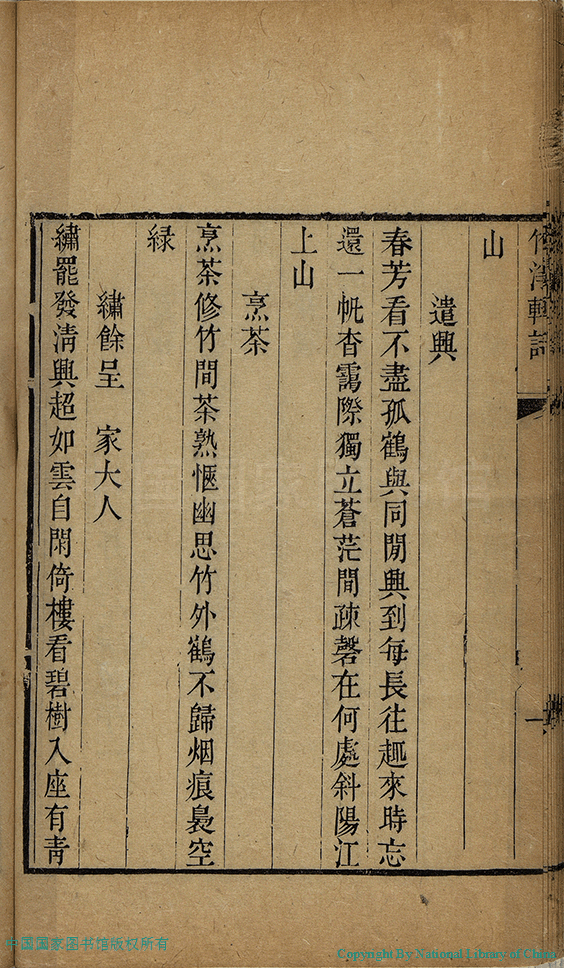 山
遣興
春芳看不盡孤鶴與同閒興到每長往趣來時忘
還一帆杳靄際獨立蒼茫間疎磬在何處斜陽江
上山
烹茶
烹茶修竹間茶熟愜幽思竹外鶴不歸烟痕裊空
緑
繡餘呈　家大人
繡罷發淸興超如雲自閑倚樓看碧樹入座有靑
中国国家图书馆版权所有
Copyright By National Library of China